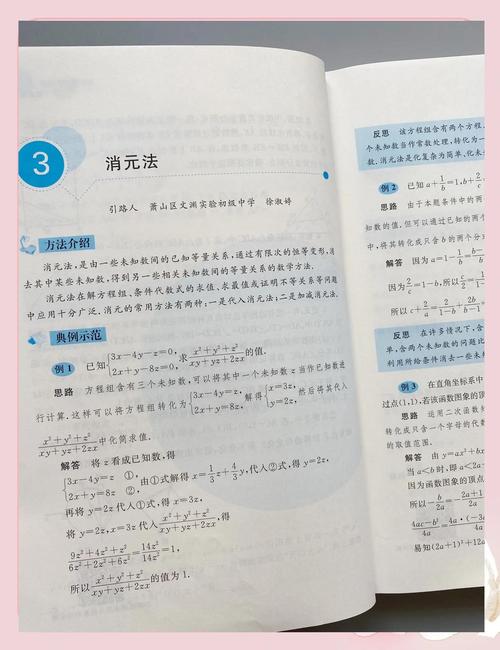 3
消元法
引路人 萧山区文渊实验初级中学 徐淑婷
方法介绍
消元法,是由一些未知数间的已知等量关系,通过有限次的恒等变形,消
去其中某些未知数,得到另一些相关未知数间的等量关系的数学方法.
消元法在解方程组、条件代数式的求值、求最值或证明不等关系等问题
中应用十分广泛.消元的常用方法有两种:一是代入消元法;二是加减消元法.
典例示范
例1 已知{3x-4y-z=0, 2x+y-8z=0, 求(x²+y²+z²)/(xy+yz+2zx)的值.
思路 方程组含有三个未知数,可以将其中一个未知数 z 当作已知数进
行计算.这样可以将方程组转化为{3x-4y=z, 2x+y=8z, 解得{x=3z, y=2z, 然后将其代入
(x²+y²+z²)/(xy+yz+2zx)中化简求值.
解答 将 z 看成已知数,得
{3x-4y=z ①, 2x+y=8z ②, 由①式解得 x=1/3z+4/3y,代入②式,得 y=2z,
再将 y=2z 代入①式,得 x=3z,
将 y=2z,x=3z 代入(x²+y²+z²)/(xy+yz+2zx),得
(9z²+4z²+z²)/(6z²+2z²+6z²)=14z²/14z²=1,
所以(x²+y²+z²)/(xy+yz+2zx)的值为 1.
反思 该方程组含有两个方程,
个未知数当作常数处理,转化为一
数.消元法是化复杂为简单、化未
例2 已知 a+1/b=1,b+2/c
思路 由于本题条件中的两
知数的值.但可以通过已知的两个
中,将其转化成只含 b 的两个分
解答 因为 a=1-1/b=(b-
因为2/c=1-b,所以 c=2/(1-
所以 c+2/a=2/(1-b)+2b/(b-1
反思 在许多情况下,含
单,含两个未知数的问题比
利用所给条件消去一些未
例3 在直角坐标系中
过点(1,1),若该函数图象的顶
思路 运用二次函数
转化成只含一个字母的代数
的取值范围.
解答 由 y=ax²+bx
当 a<b 时,即 a<-2a-
因为函数图象的顶点
所以-b/2a=-(-2a+1
(4ac-b²)/4a=(4a·(-3a
易知(2a+1)²+12a